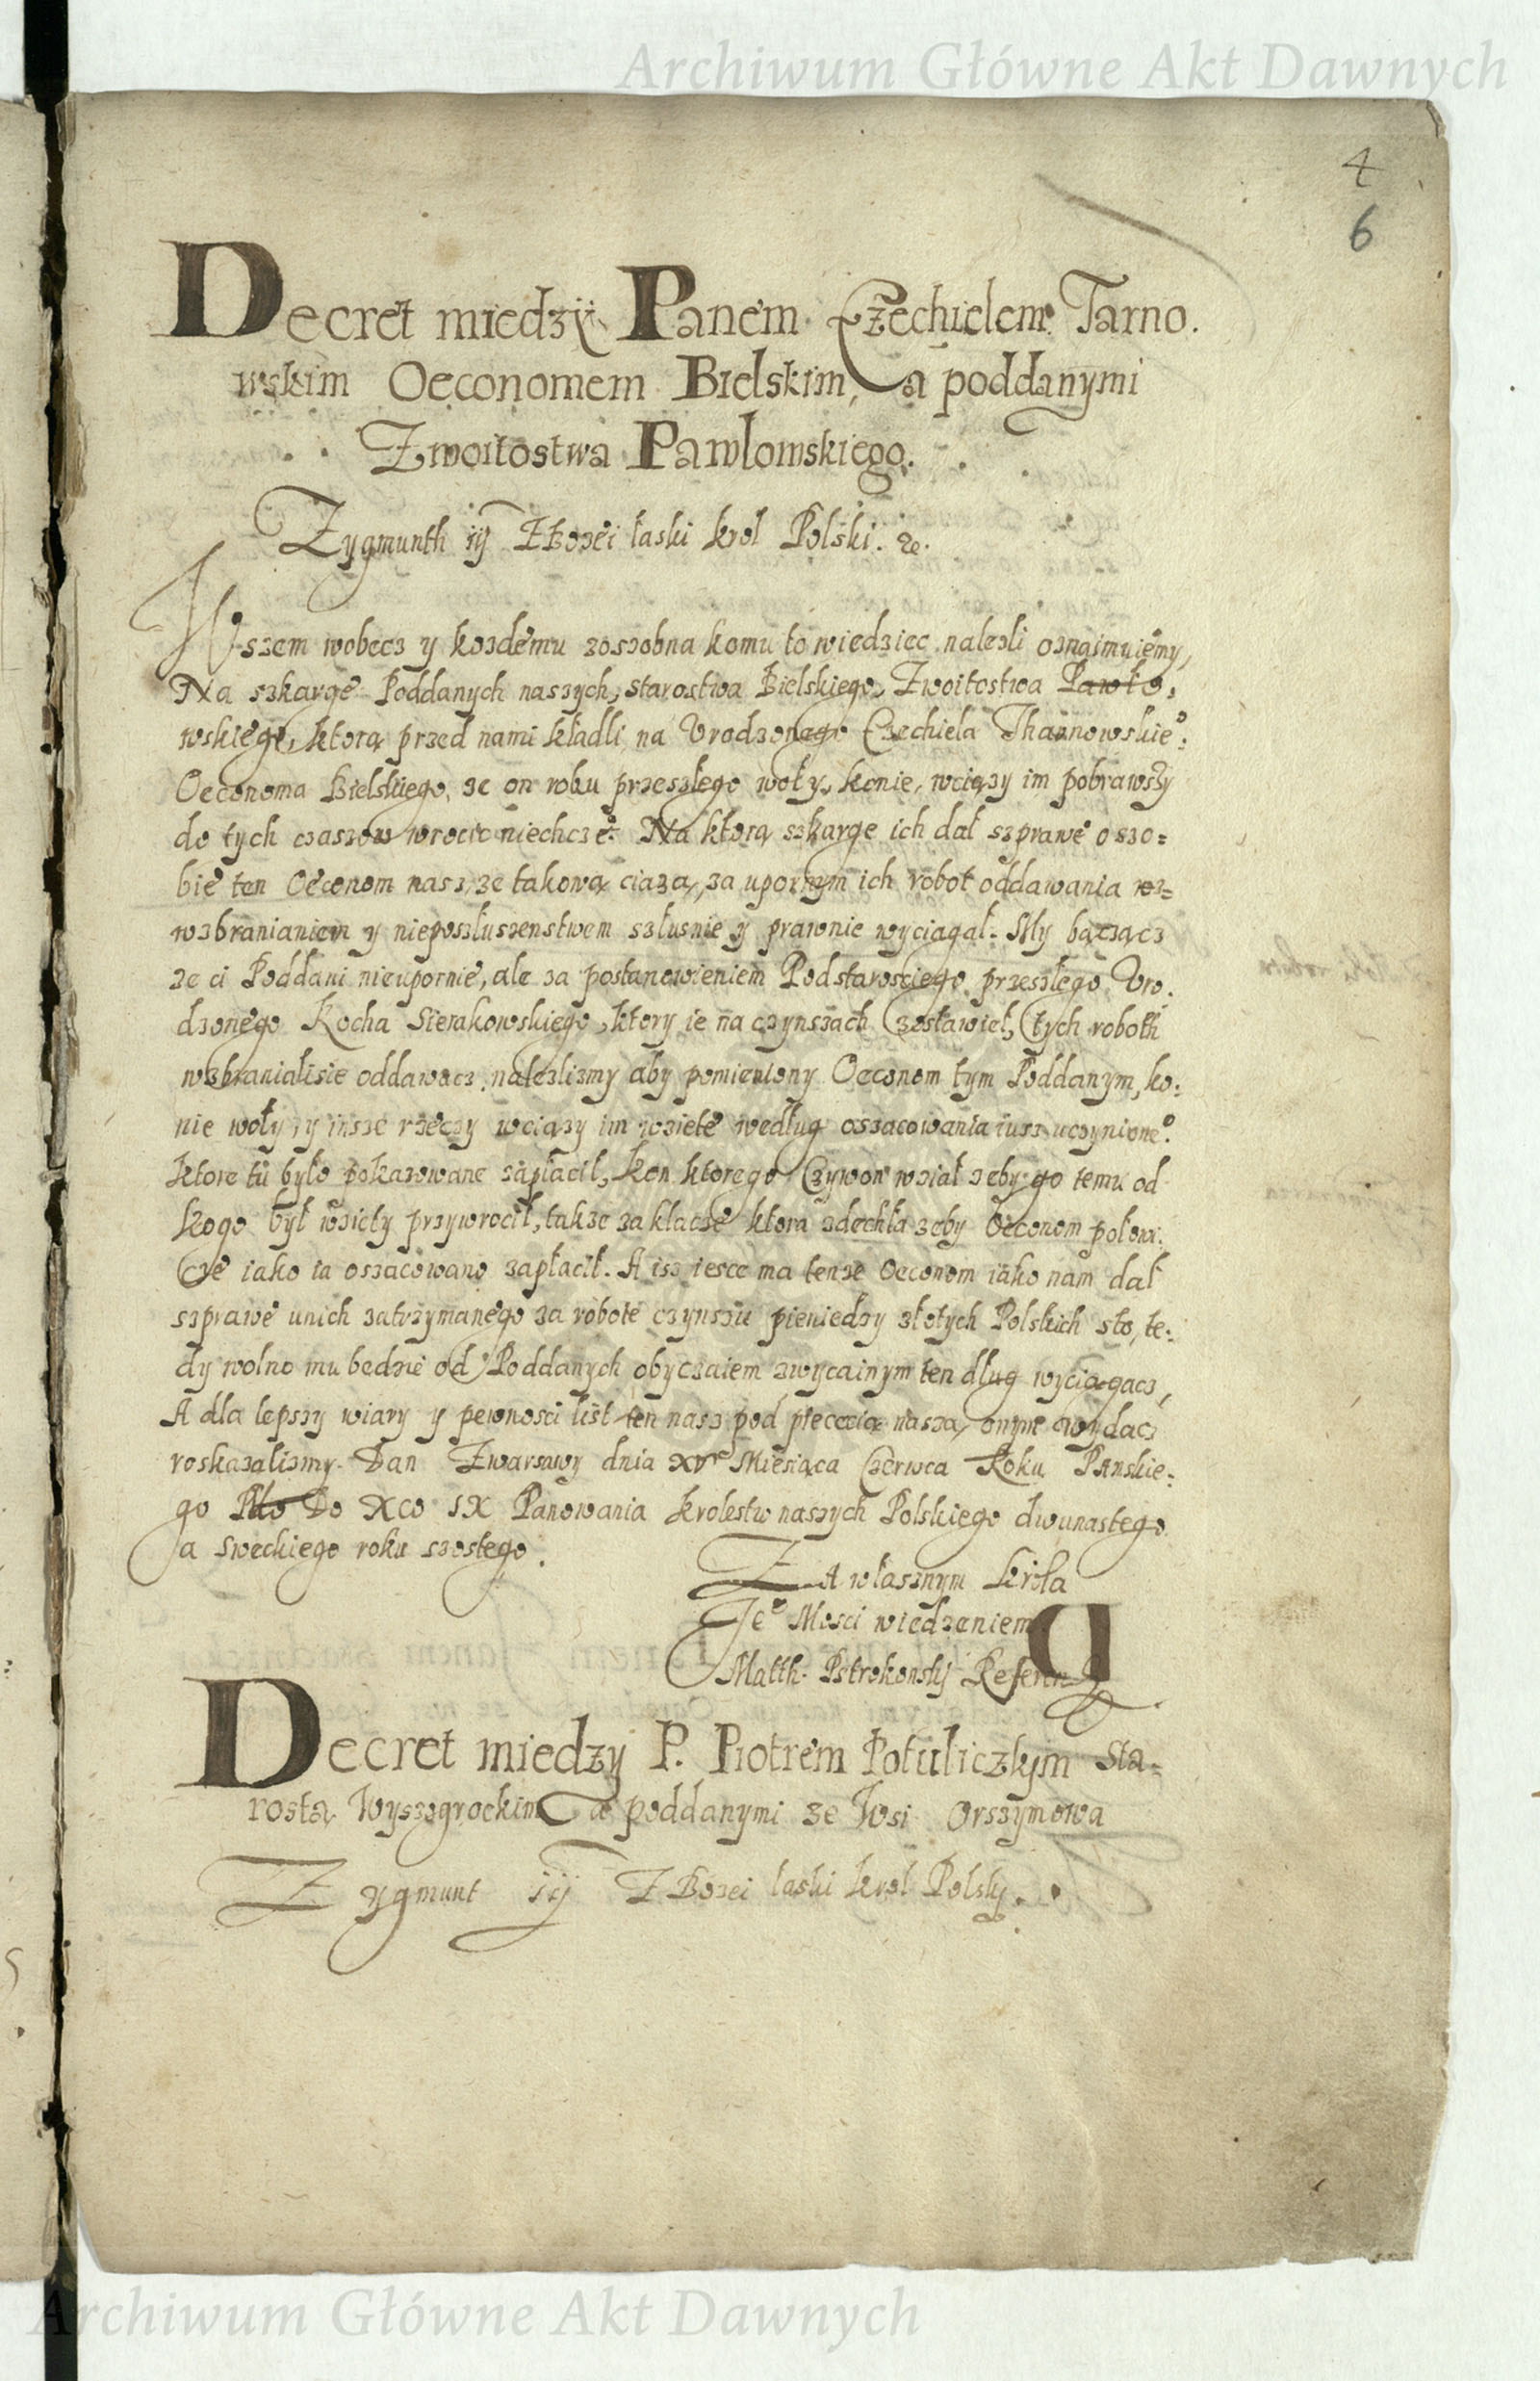 Archiwum Główne Akt Dawnych
4
6
Decret miedzy Panem Ezechielem Tarno.
wskim Oeconomem Bielskim, a poddanymi
Zwoitostwa Pawlowskiego.
Zygmunth iij Z Bozei łaski krol Polski. &c.
Wszem wobecz y kozdemu zoszobna komu to wiedziec nalezli oznaimuiemy,
Na szkarge Poddanych naszych, starostwa Bielskiego, Zwoitostwa Pawło,
wskiego, ktorą przed nami kładli, na Vrodzonego Ezechiela Tharnowskieº:
Oeconoma Bielskiego, ze on roku przeszłego woły, konie, wciązy im pobrawszy
do tych czaszow wrocic niechcze: Na ktorą szkarge ich dał szprawe o szo=
bie ten Oeconom nasz, ze takową ciąza, za upornym ich robot oddawania
wzbranianiem y nieposzłuszenstwem szłusnie y prawnie wyciagał. My bączącz
ze ci Poddani nieupornie, ale za postanowieniem Podstarosciego przeszłego Vro.
dzonego Rocha Sierakowskiego, ktory ie na czynszach zostawieł, tych roboth
wzbranialisie oddawacz, nalezlizmy aby pomieniony Oeconom tym Poddanym, ko:
nie woły y insze rzeczy wciązy im wziete według oszacowania iusz uczynioneº.
ktore tu było pokazowane zapłacił, kon ktorego Czywon wział zeby go temu od
kogo był wzięty przywrocił, takze za klacze ktora zdechła zeby Oeconom połowi:
cze iako ia oszacowano zapłacił. A isz iesce ma tenze Oeconom iako nam dał
szprawe unich zatrzymanego za robote czynszu pieniedzy złotych Polskich sto, te:
dy wolno mu bedzie od Poddanych obyczaiem zwycainym ten dług wyciągacz,
A dla lepszy wiary y pewnosci list ten nasz pod pieczecia nasza, onym wydacz
roskazalizmy. Dan Zwarsawy dnia xv Miesiąca Czerwca Roku Panskie:
go Do XCo IX Panowania krolestw naszych Polskiego dwunastego
a Sweckiego roku szostego.
ZA własznym krola
Jeº Mosci wiedzeniem
Matth. Pstrokonsky Referen
Decret miedzy P. Piotrem Potuliczkym Sta=
rostą Wyszogrockim a poddanymi ze Wsi Orszymowa
Zygmunt iij Z Bozei laski krol Polsky.
Archiwum Główne Akt Dawnych